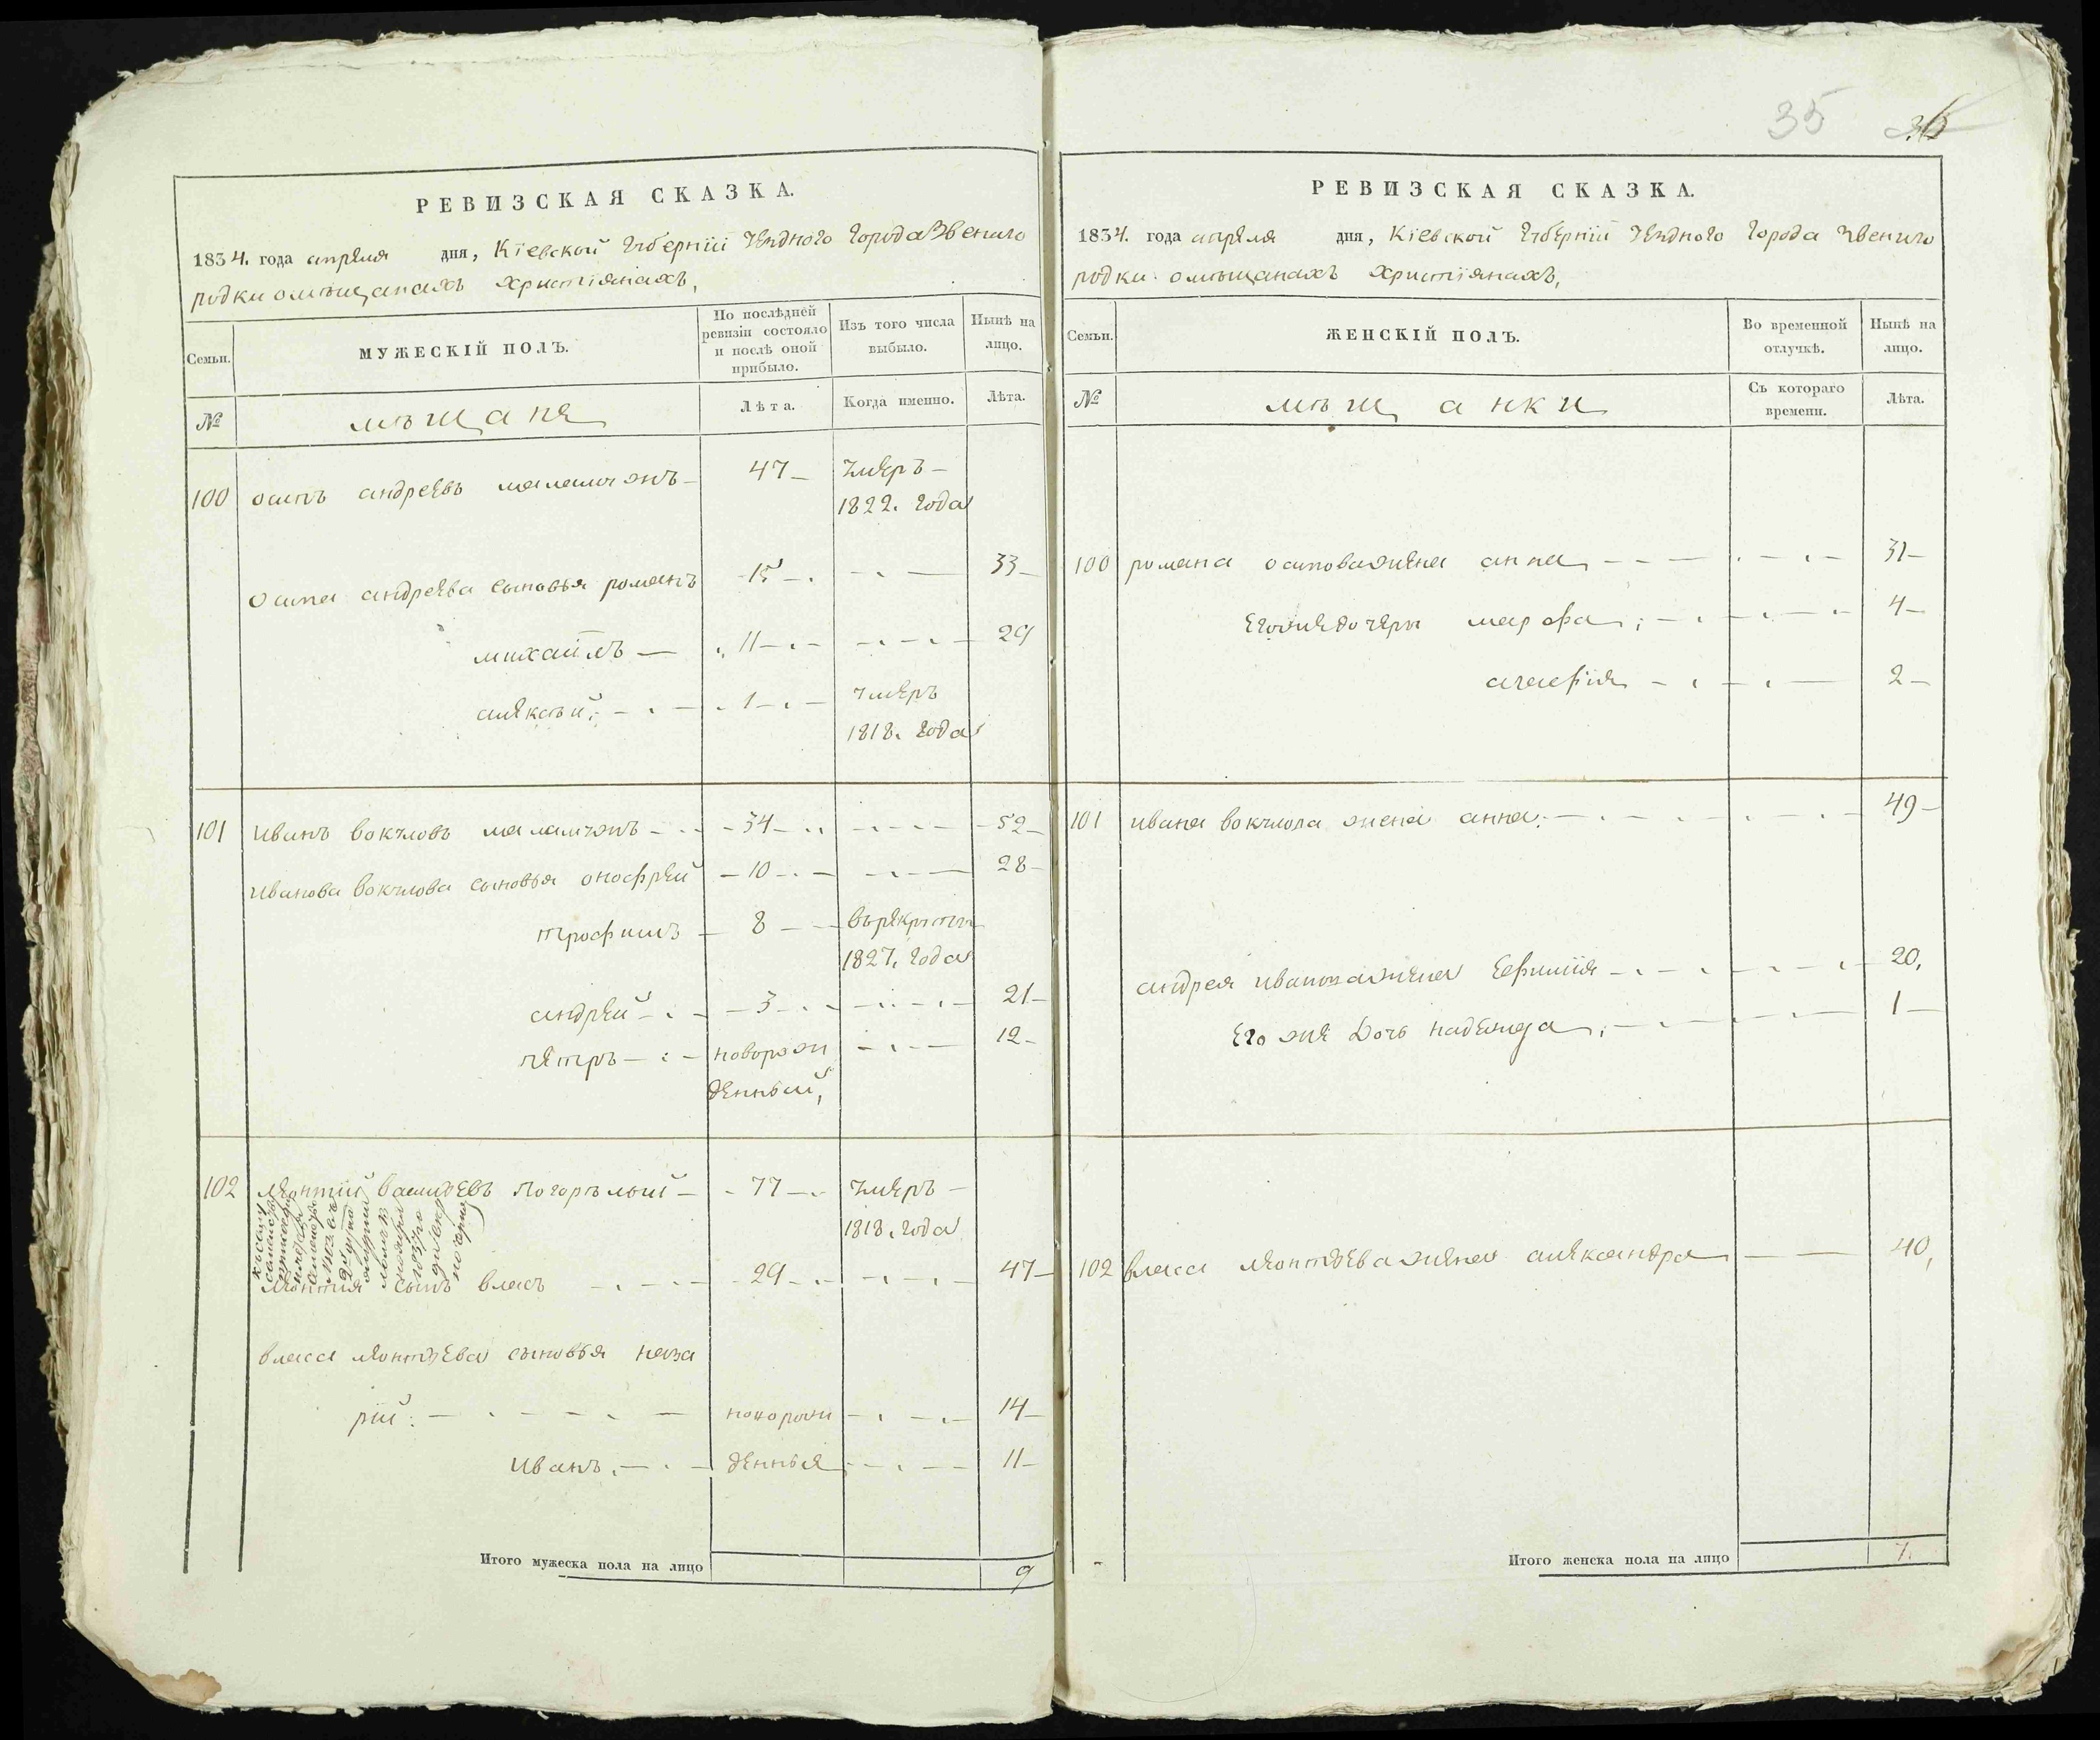 35 36
РЕВИЗСКАЯ СКАЗКА.
1834. года апреля дня, Кіевской губерніи уезднаго города Звениго
родки омѣщанахъ христіянахъ,
Семьи. МУЖЕСКІЙ ПОЛЪ. По послѣдней ревизіи состояло и послѣ оной прибыло. Изъ того числа выбыло. Нынѣ на лицо.
№ мѣщане Лѣта. Когда именно. Лѣта.
100 осипъ андреевъ 47 умеръ
1822. года
осипа андреева сыновья романъ 15 33
михаилъ 11 29
алексѣй 1 умеръ
1818. года
101 иванъ 34 52
иванова сыновья онофрей 10 28
трофимъ 8 врекруты
1827. года
андрей 3 21
петръ новорож 12
денный,
102 леонтій василіевъ погорѣлый 77 умеръ
1818. года
леонтия сынъ власъ 29 47
власа леонтьева сыновья наза
рій: новорож 14
иванъ денные 11
Итого мужеска пола на лицо 9
РЕВИЗСКАЯ СКАЗКА.
1834. года апреля дня, Кіевской губерніи уезднаго города Звениго
родки омѣщанахъ христіянахъ,
Семьи. ЖЕНСКІЙ ПОЛЪ. Во временной отлучкѣ. Нынѣ на лицо.
№ мѣщанки Съ котораго времени. Лѣта.
100 романа осипова жена анна 31
егоже дочери марфа 4
агафія 2
101 ивана жена анна 49
андрея иванова жена ефимія 20,
его же дочь надежда 1
102 власа леонтьева жена александра 40,
Итого женска пола на лицо 7.